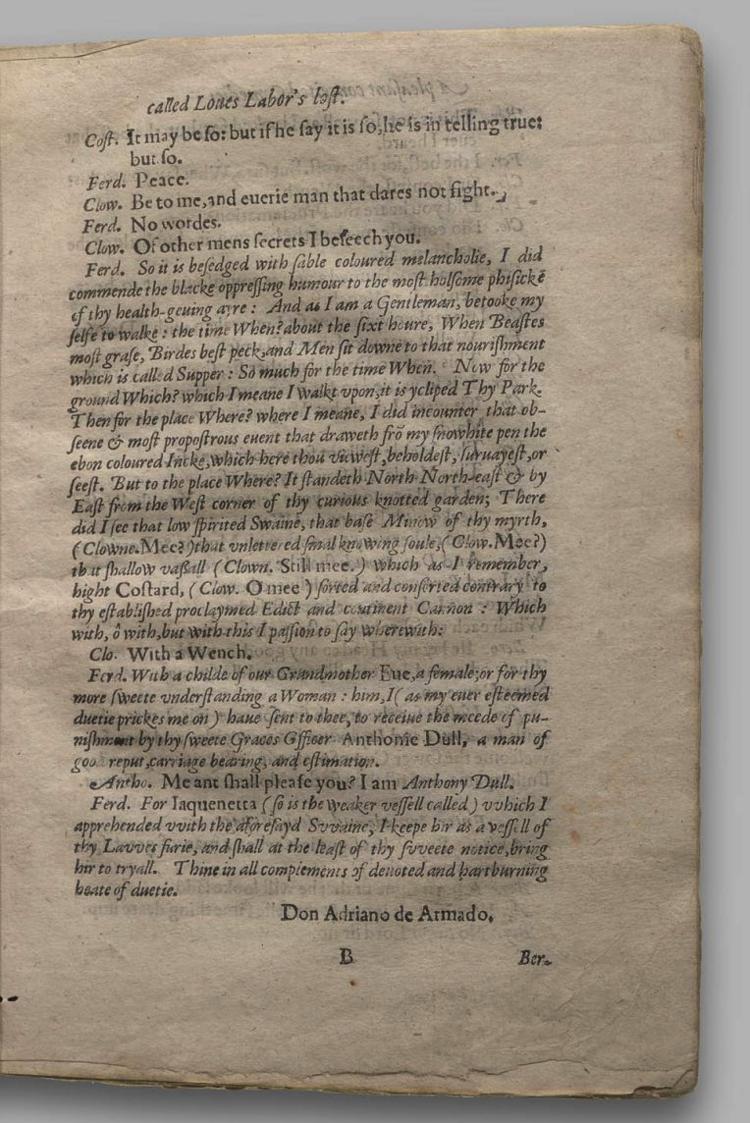 called Loues Labor's lost.
Cost. It may be so: but if he say it is so, he is in telling true:
but so.
Ferd. Peace.
Clow. Be to me, and euerie man that dares not fight.
Ferd. No wordes.
Clow. Of other mens secrets I beseech you.
Ferd. So it is besedged with sable coloured melancholie, I did
commende the blacke oppressing humour to the most holsome phisickē
of thy health-geuing ayre: And as I am a Gentleman, betooke my
selfe to walke: the time When? about the sixt houre, When Beastes
most grase, Birdes best peck, and Men sit downe to that nourishment
which is called Supper: So much for the time When. Now for the
ground Which? which I meane I walkt vpon, it is ycliped Thy Park.
Then for the place Where? where I meane, I did incounter that ob-
seene & most propostrous euent that draweth frō my snowhite pen the
ebon coloured Incke, which here thou viewest, beholdest, suruayest, or
seest. But to the place Where? It standeth North North-east & by
East from the West corner of thy curious knotted garden; There
did I see that low spirited Swaine, that base Minow of thy myrth,
(Clowne. Mee?) that vnlettered smal knowing soule, (Clow. Mee?)
that shallow vassall (Clown. Still mee.) which as I remember,
hight Costard, (Clow. O mee) sorted and consorted contrary to
thy established proclaymed Edict and continent Cannon: Which
with, ô with, but with this I passion to say wherewith:
Clo. With a Wench.
Ferd. With a childe of our Grandmother Eue, a female; or for thy
more sweete vnderstanding a Woman: him, I (as my euer esteemed
duetie prickes me on) haue sent to thee, to receiue the meede of pu-
nishment by thy sweete Graces Officer Anthonie Dull, a man of
good reput, carriage bearing, and estimation.
Antho. Me ant shall please you? I am Anthony Dull.
Ferd. For Iaquenetta (so is the weaker vessell called) vvhich I
apprehended vvith the aforesayd Svvaine, I keepe hir as a vessell of
thy Lavves furie, and shall at the least of thy svveete notice, bring
hir to tryall. Thine in all complements of deuoted and hartburning
heate of duetie.
Don Adriano de Armado.
B Ber-